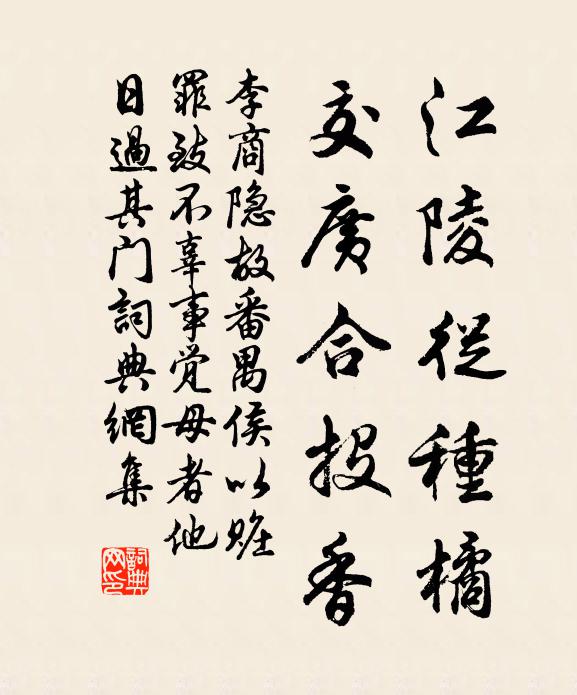 江陵從種橘
交廣合投香
李商隐故番禺侯以赃
罪致不辜事觉母者他
日過其门詞典網集
詞典网印